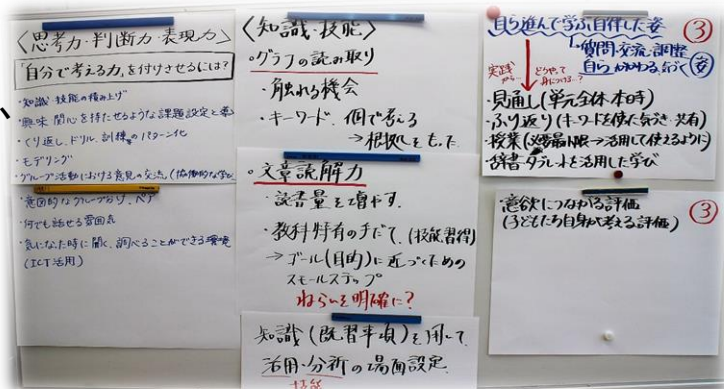 〈思考力・判断力・表現力〉
「自分で考える力」を付けさせるには?
・知識・技能の積み上げ
・興味関心を持たせるような課題設定と
・くり返し、ドリル、訓練のパターン化
・モデリング
・グループ活動における意見の交流(協働的な学び
・意図的なグループ分け、ペア
・何でも話せる雰囲気
・気になった時に聞く、調べることができる環境
(ICT活用)
〈知識・技能〉
・グラフの読み取り
・触れる機会
・キーワード、個で考える
→根拠をもった
・文章読解力
・読書量を増やす。
・教科特有の手だて。(技能習得)
→ゴール(目的)に近づくための
スモールステップ
ねらいを明確に?
知識(既習事項)を用いて
活用・分析の場面設定
技能
自ら進んで学ぶ自律した姿
③
質問・交流・調整
自らかかわる、気づく姿
実践から…
どうやって身につける…?
・見通し(単元全体・本時)
・ふり返り(キーワードを使った気づき・共有)
・授業(必要最小限→活用して使えるように)
・辞書・タブレットを活用した学び
・意欲につながる評価
(子どもたち自身が考える評価)
③